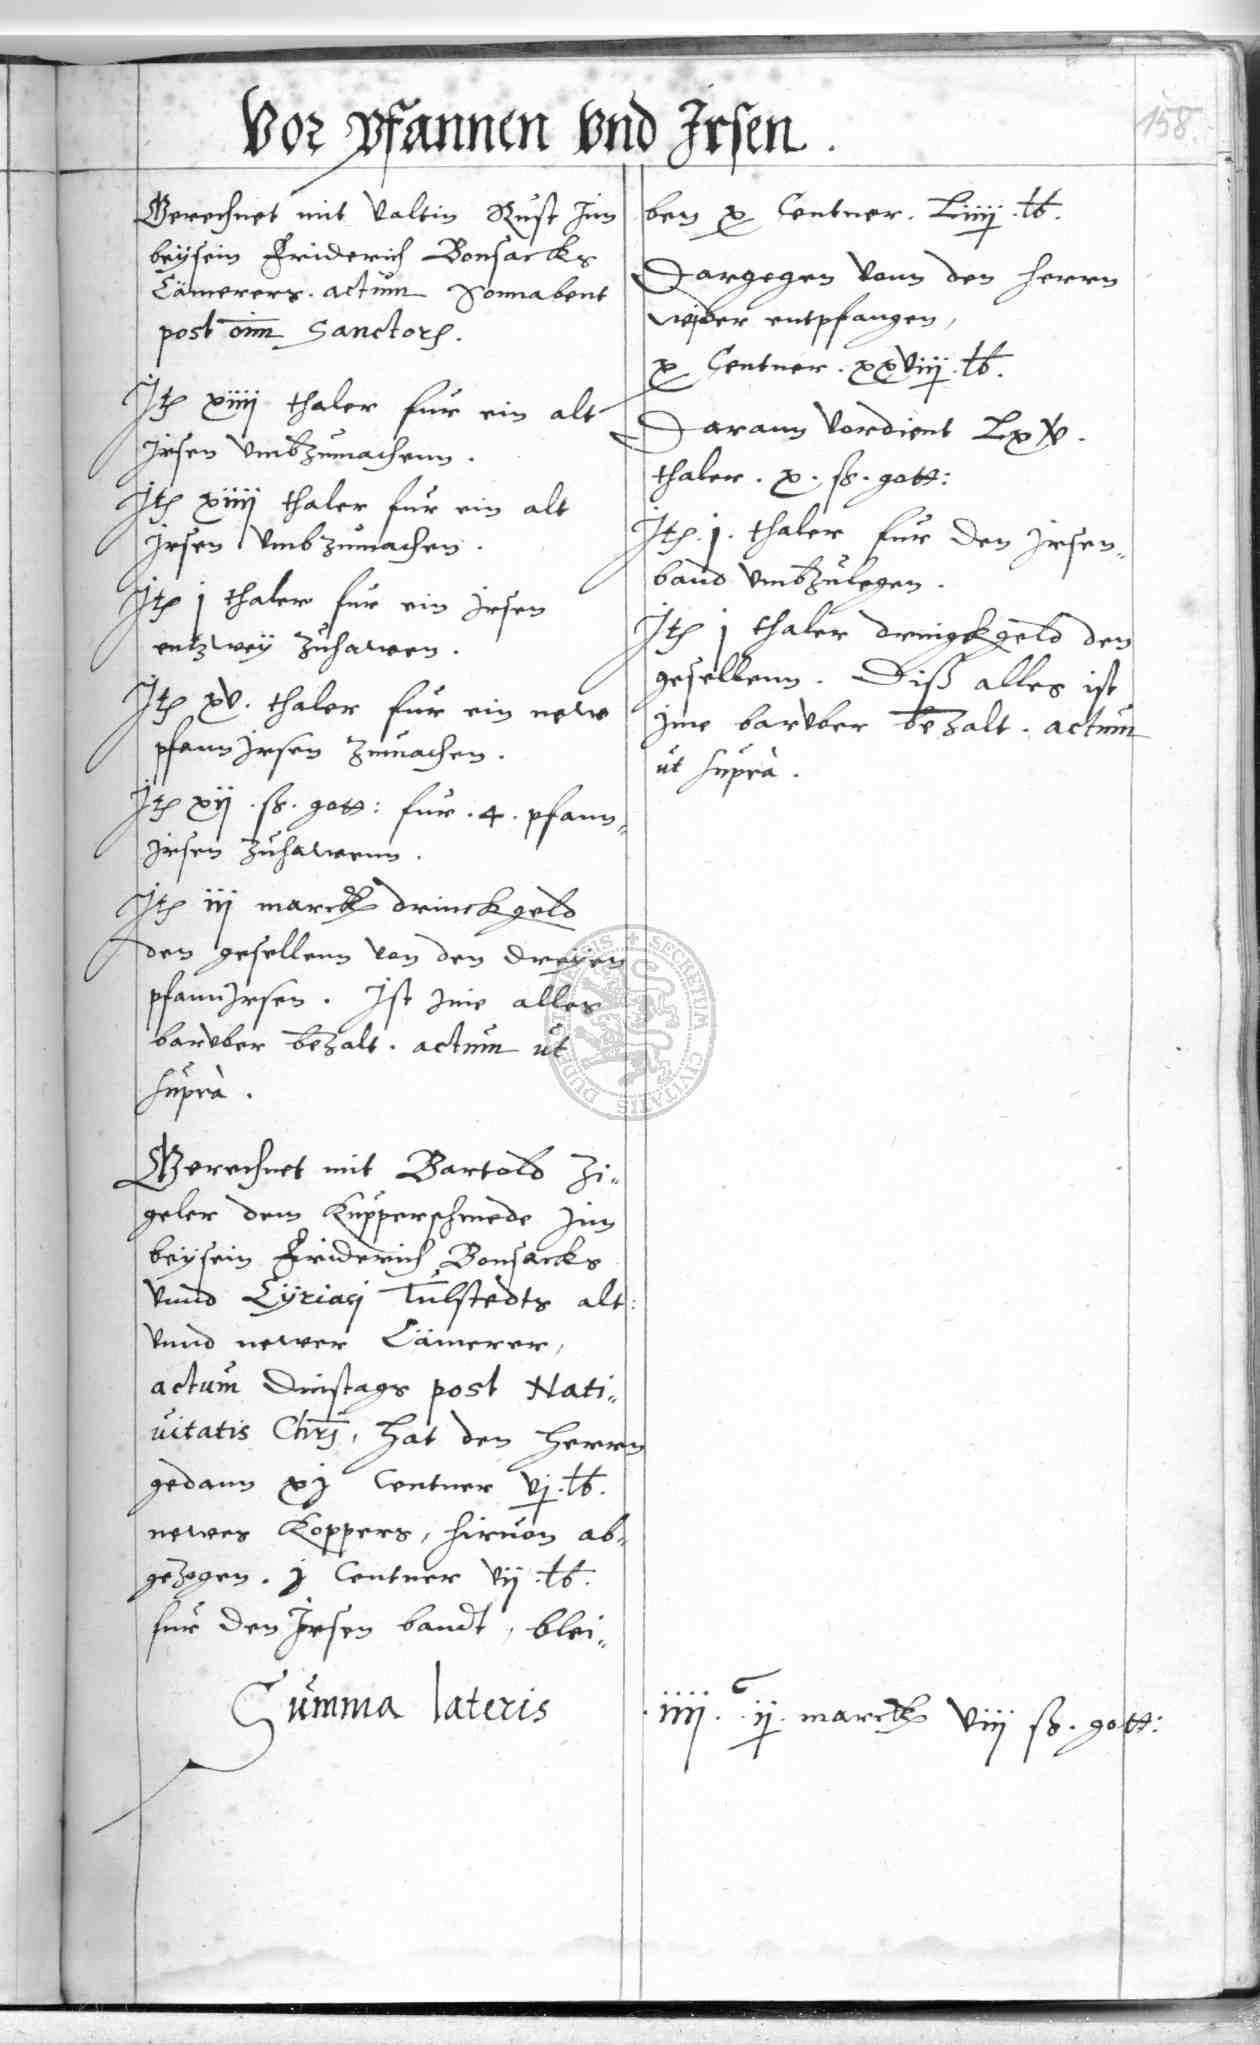 Vor pfannen vnd Irsen.
158.
Gerechnet mit Valtin Rust Inn
beysein Friderich Bonsacks
Cämerers. actum Sonnabent
post oīm Sanctorꝭ.
Itꝭ xiiij thaler fur ein alt
Irsen vmbzumachenn.
Itꝭ xiiij thaler fur ein alt
Irsen vmbzumachen.
Itꝭ j thaler fur ein Irsen
entzwey zuhawen.
Itꝭ xv. thaler fur ein new
pfann Irsen zumachen.
Itꝭ xij. ß. gott: fur .4. pfann„
Irsen zuhawenn.
Itꝭ iij marck drinckgeld
den gesellenn von den dreyen
pfannIrsen. Ist Ime alles
baruber bezalt. actum ut
supra.
Gerechnet mit Bartold Zi„
geler dem Kupperschmede Inn
beysein Friderich Bonsacks
vnnd Cyriaci Tulstedts alt:
vnnd newer Cämerer,
actum Dinstags post Nati„
uitatis Chrj, hat den Herrn
gedann xj Centner vj. ℔.
newes Koppers, hiruon ab„
gezogen. j Centner vij. ℔.
fur den Irsen bandt, blei„
ben x Centner. Liiij. ℔.
Dargegen vonn den herrn
wider entpfangen,
x Centner. xxviij. ℔.
Darann vordient Lxv.
thaler. x. ß. gott:
Itꝭ. j. thaler fur den Irsen„
band vmbzulegen.
Itꝭ j thaler dringkgeld den
gesellenn. Diß alles ist
Ime baruber bezalt. actum
ut supra.
Summa lateris
.iiij. c .ij. marck viij ß. gott:
SECRETUM CIVITATIS